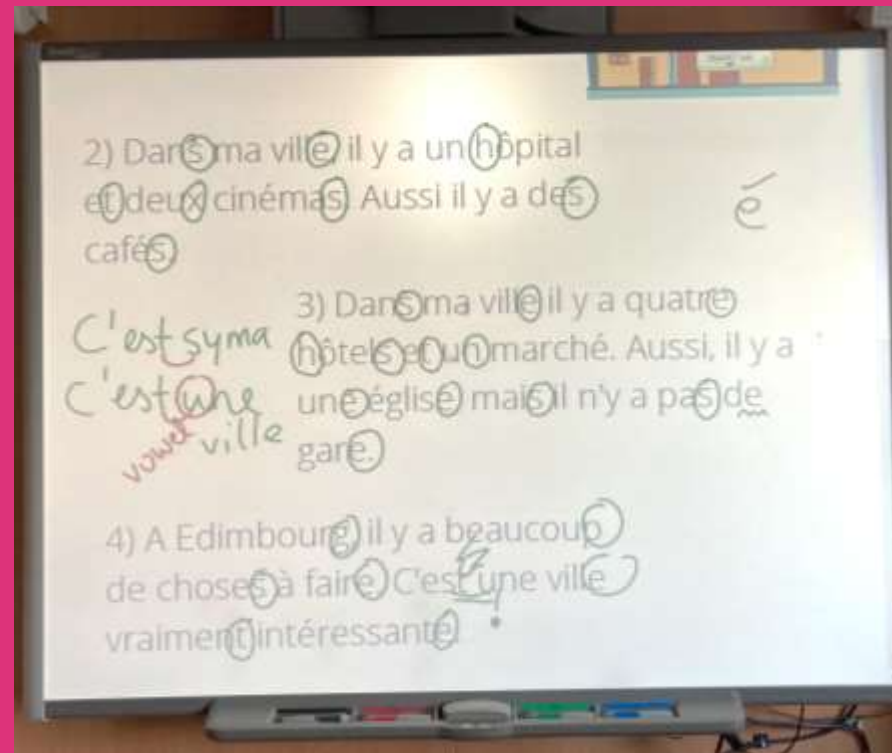 2) Dans ma ville, il y a un hôpital
et deux cinémas. Aussi il y a des
cafés.
é
3) Dans ma ville il y a quatre
hôtels et un marché. Aussi, il y a
une église mais il n'y a pas de
gare.
C'est syma
C'est une
vowel
ville
4) A Edimbourg, il y a beaucoup
de choses à faire. C'est une ville
vraiment intéressante.